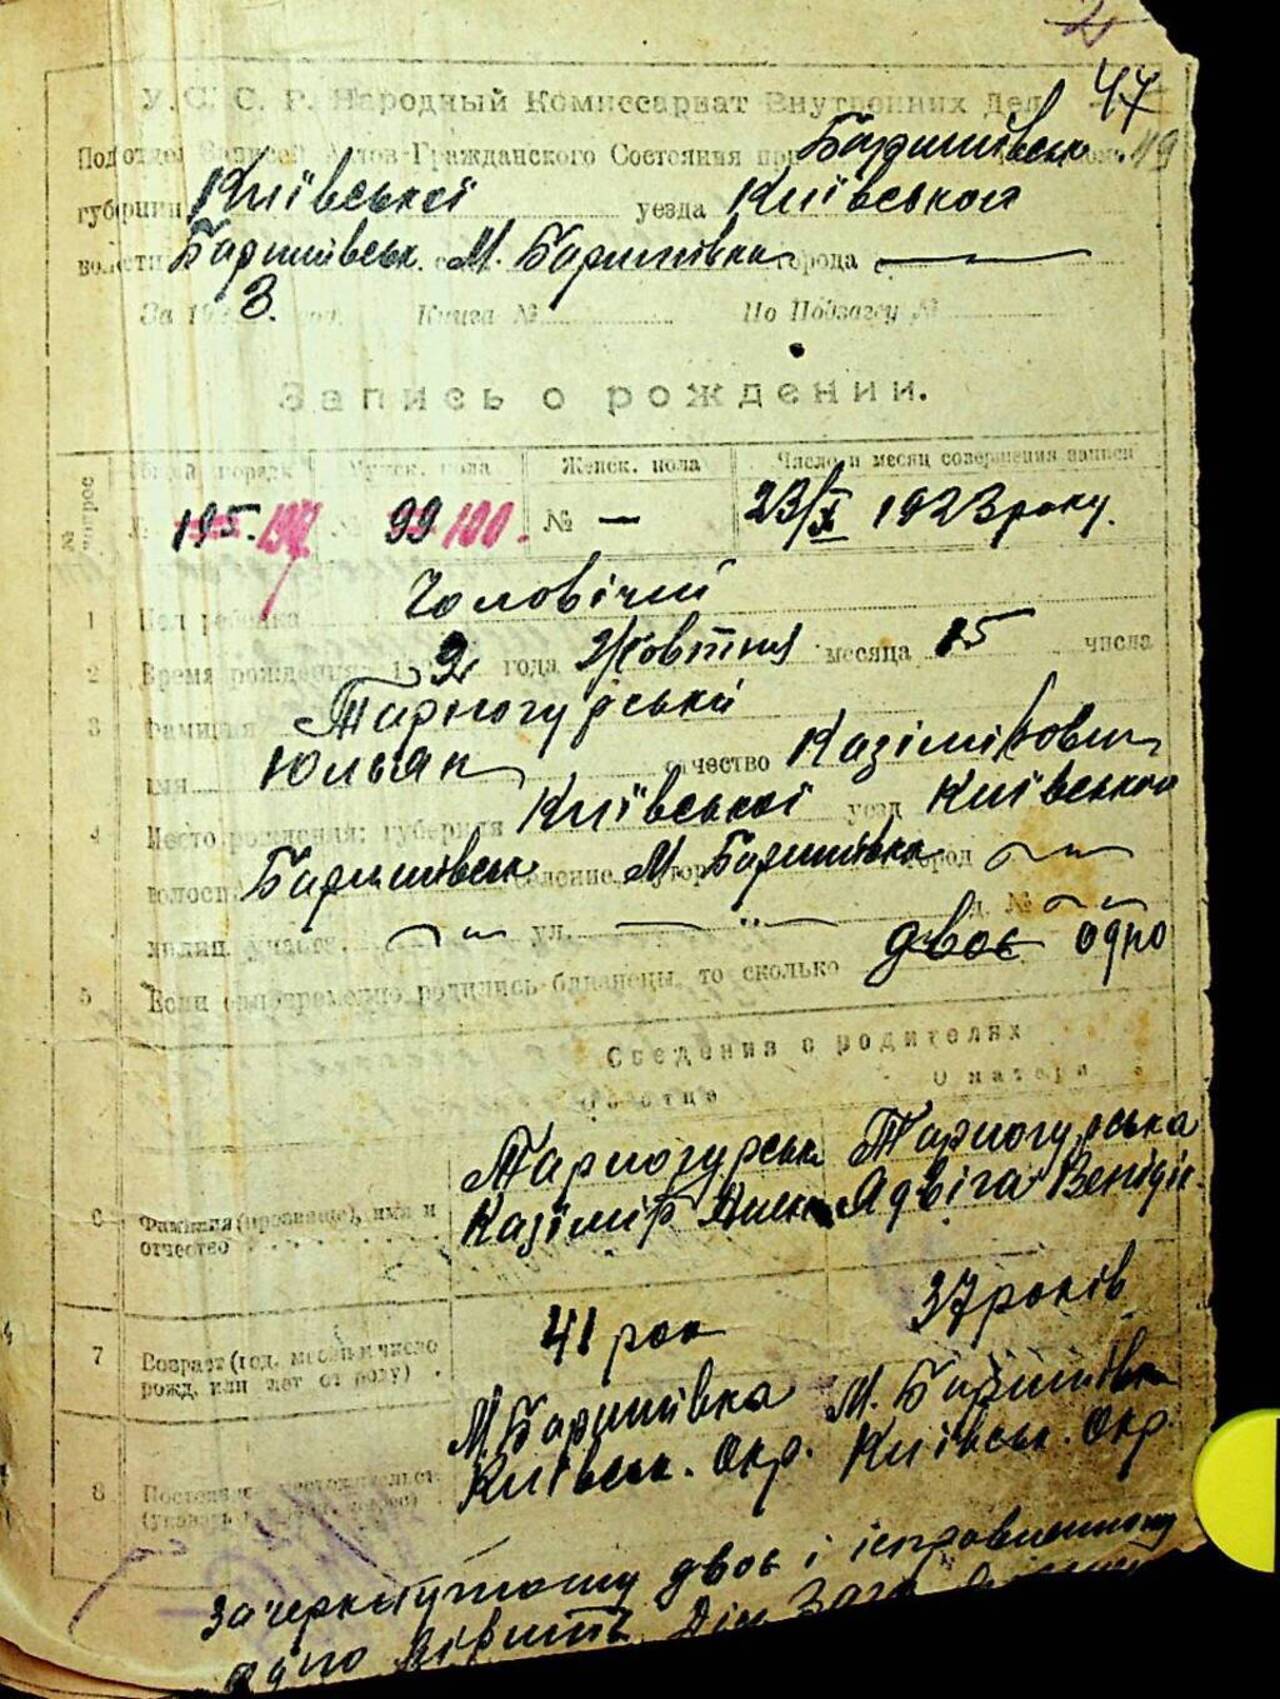 47
У. С. С. Р. Народный Комиссариат Внутренних Дел
Подотдел Записей Актов Гражданского Состояния при Баришівськ.
губернии Київської уезда Київськоя
волости Баришівськ. М. Баришівка города
За 192 3. год. Книга № По Подзагсу №
Запись о рождении.
№ вопрос Общий порядк Мужск. пола Женск. пола Число и месяц совершения записи
№ 195. 197 № 99 100. № — 23/X 1923 року.
1 Пол ребенка Чоловічий
2 Время рождения: 192 года Жовтня месяца 15 числа
3 Фамилия Тарногурський
имя Юльян отчество Казімірович
4 Место рождения: губерния Київської уезд Київськоя
волость Баришівськ селение, хутор М. Баришівка город
милиц. участк. ул. д. №
5 Если одновременно родились близнецы, то сколько двоє одно
Сведения о родителях
О отце О матери
Тарногурськ Тарногурська
6 Фамилия (прозвище), имя и отчество Казімір Ядвіга
7 Возраст (год, месяц и число рожд. или лет от роду) 41 рок 37 років
М. Баришівка М. Баришівка
8 Київськ. Окр. Київськ. Окр.
Зачеркнутому двоє і
одно вірить.